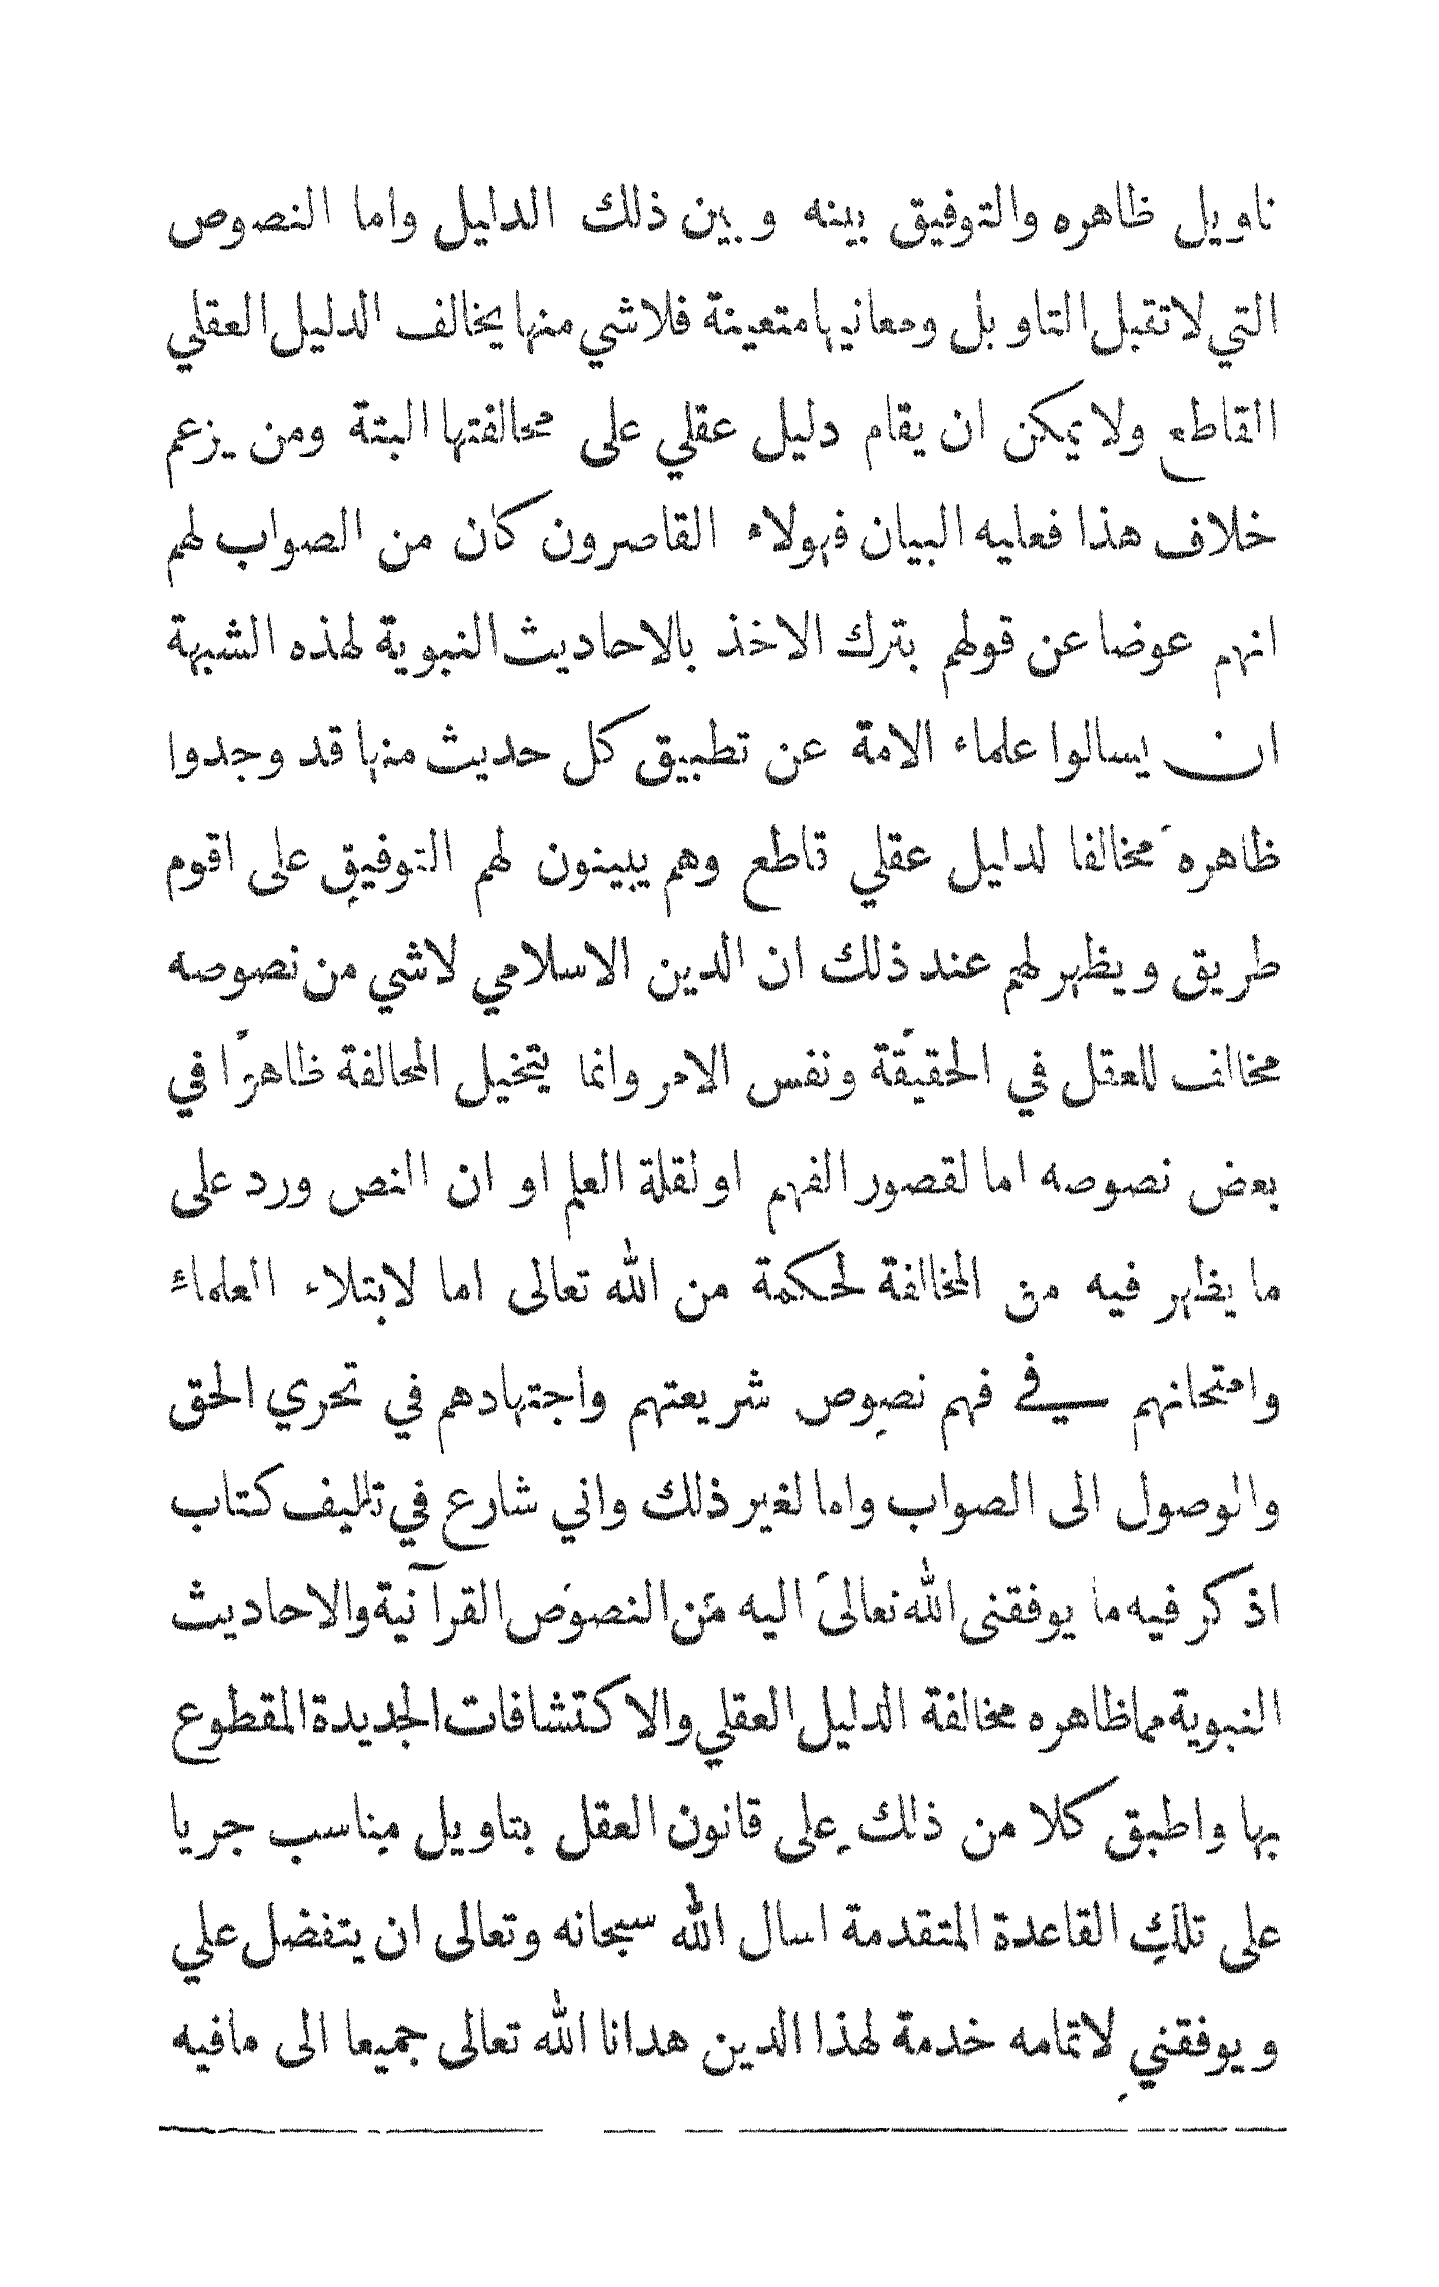 تاويل ظاهره والتوفيق بينه وبين ذلك الدليل واما النصوص
التي لا تقبل التاويل ومعانيها متعينة فلاشي منها يخالف الدليل العقلي
القاطع ولا يمكن ان يقام دليل عقلي على مخالفتها البتة ومن يزعم
خلاف هذا فعليه البيان فهولاء القاصرون كان من الصواب لهم
انهم عوضا عن قولهم بترك الاخذ بالاحاديث النبوية لهذه الشبهة
ان يسالوا علماء الامة عن تطبيق كل حديث منها قد وجدوا
ظاهره مخالفا لدليل عقلي قاطع وهم يبينون لهم التوفيق على اقوم
طريق ويظهر لهم عند ذلك ان الدين الاسلامي لاشي من نصوصه
مخالف للعقل في الحقيقة ونفس الامر وانما يتخيل المخالفة ظاهرًا في
بعض نصوصه اما لقصور الفهم او لقلة العلم او ان النص ورد على
ما يظهر فيه من المخالفة لحكمة من الله تعالى اما لابتلاء العلماء
وامتحانهم في فهم نصوص شريعتهم واجتهادهم في تحري الحق
والوصول الى الصواب واما لغير ذلك واني شارع في تاليف كتاب
اذكر فيه ما يوفقنى الله تعالى اليه من النصوص القرآنية والاحاديث
النبوية مما ظاهره مخالفة الدليل العقلي والاكتشافات الجديدة المقطوع
بها واطبق كلا من ذلك على قانون العقل بتاويل مناسب جريا
على تلك القاعدة المتقدمة اسال الله سبحانه وتعالى ان يتفضل علي
ويوفقني لاتمامه خدمة لهذا الدين هدانا الله تعالى جميعا الى مافيه